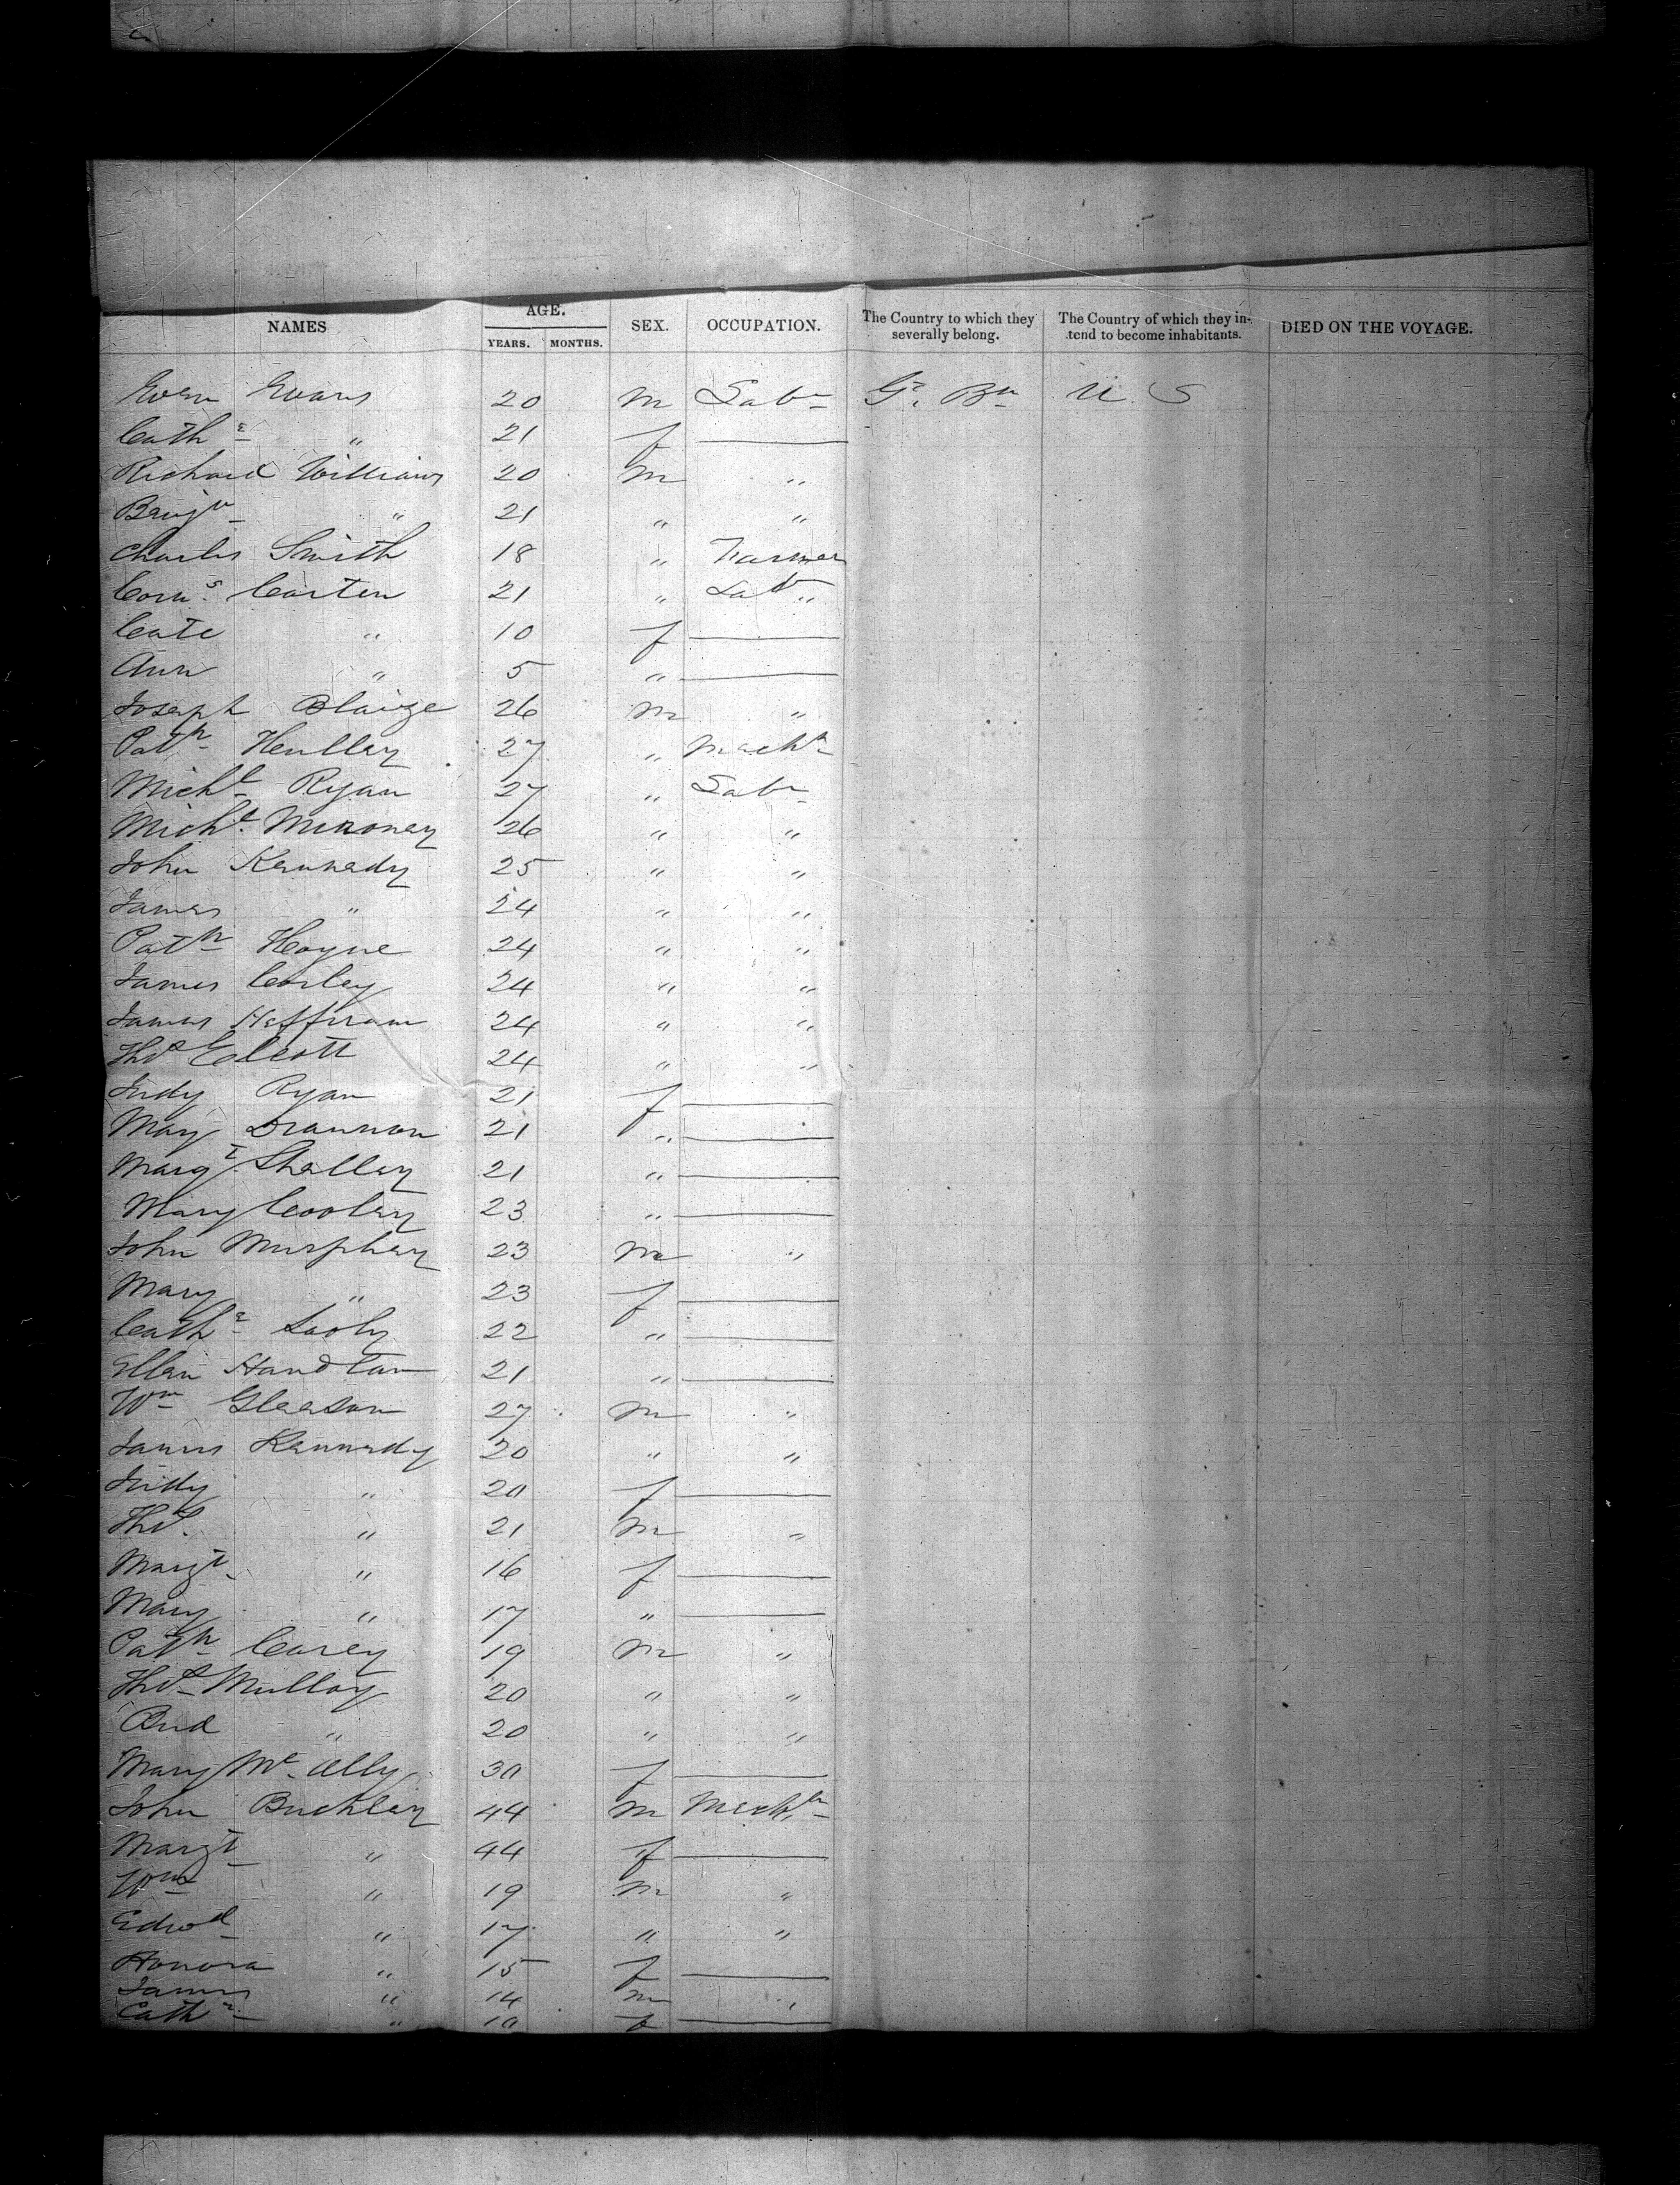 NAMES AGE. YEARS. MONTHS. SEX. OCCUPATION. The Country to which they severally belong. The Country of which they intend to become inhabitants. DIED ON THE VOYAGE.
Evan Evans 20 m Labr Gt. Bn U. S
Cathe " 21 f —
Richard Williams 20 m "
Benjn " 21 " "
Charles Smith 18 " Farmer
Corns. Carten 21 " Labr "
Cate " 10 f —
Ann " 5 " —
Joseph Blaize 26 m "
Patk Hulley 27 " Mechc
Michl Ryan 27 " Labr
Michl. Meroney 26 " "
John Kennedy 25 " "
James " 24 " "
Patk Hoyne 24 " "
James Corley 24 " "
James Heffernan 24 " "
Thos Elcott 24 " "
Judy Ryan 21 f —
Mary Drannon 21 " —
Margt Shelley 21 " —
Mary Cooley 23 " —
John Murphey 23 m "
Mary " 23 f —
Cathe 22 " —
Ellen Handlan 21 " —
Wm Gleason 27 m "
James Kennedy 20 " "
Judy " 20 f —
Thos. " 21 m "
Margt " 16 f —
Mary " 17 " —
Patk Carey 19 m "
Thos Mulloy 20 " "
" 20 " "
Mary Mc Ally 30 f —
John Buckley 44 m Mechc
Margt " 44 f —
Wm " 19 m "
Edwd " 17 " "
Honora " 15 f —
James " 14 m "
Cathe " 10 f —